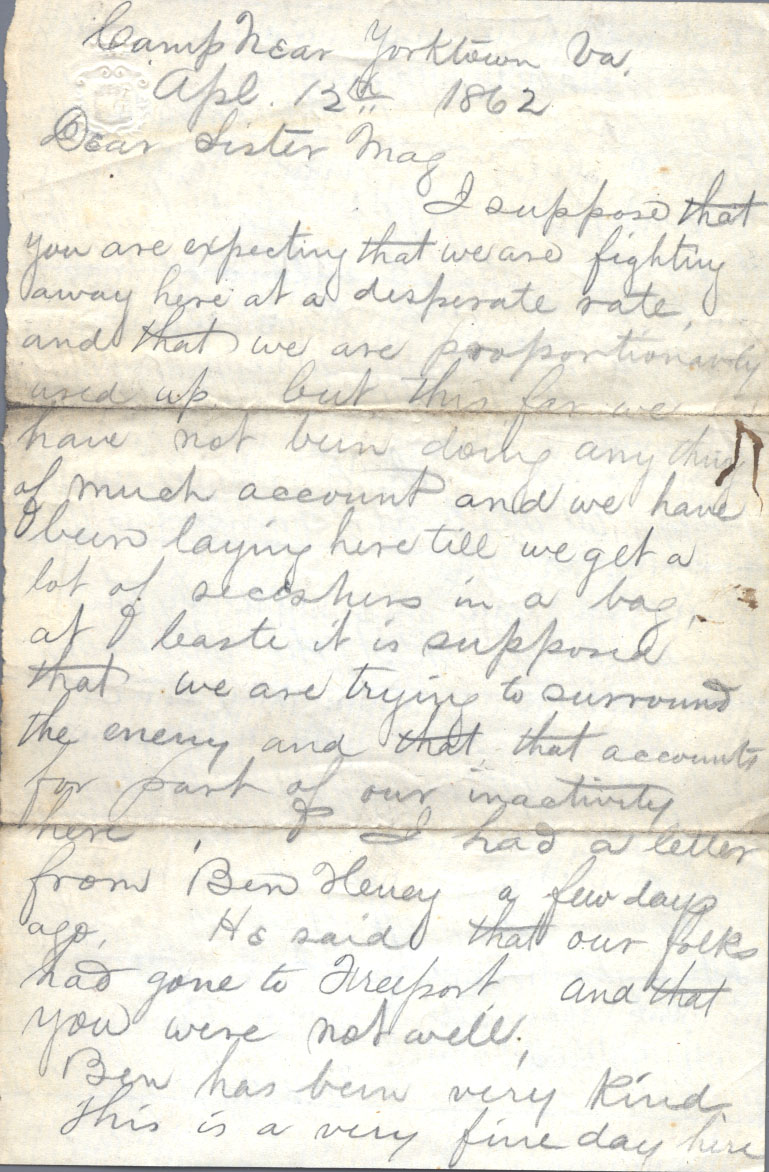 Camp Near Yorktown Va.
Apl. 12th 1862
Dear Sister Mag
I suppose that
you are expecting that we are fighting
away here at a desperate rate,
and that we are proportionably
used up. but this far we
have not been doing any thing
of much account and we have
been laying here till we get a
lot of seceshers in a bag,
at leaste it is supposed
that we are trying to surround
the enemy and that that accounts
for part of our inactivity
here. I had a letter
from Ben Heney a few days
ago, He said that our folks
had gone to Freeport and that
you were not well,
Ben has been very kind
This is a very fine day here